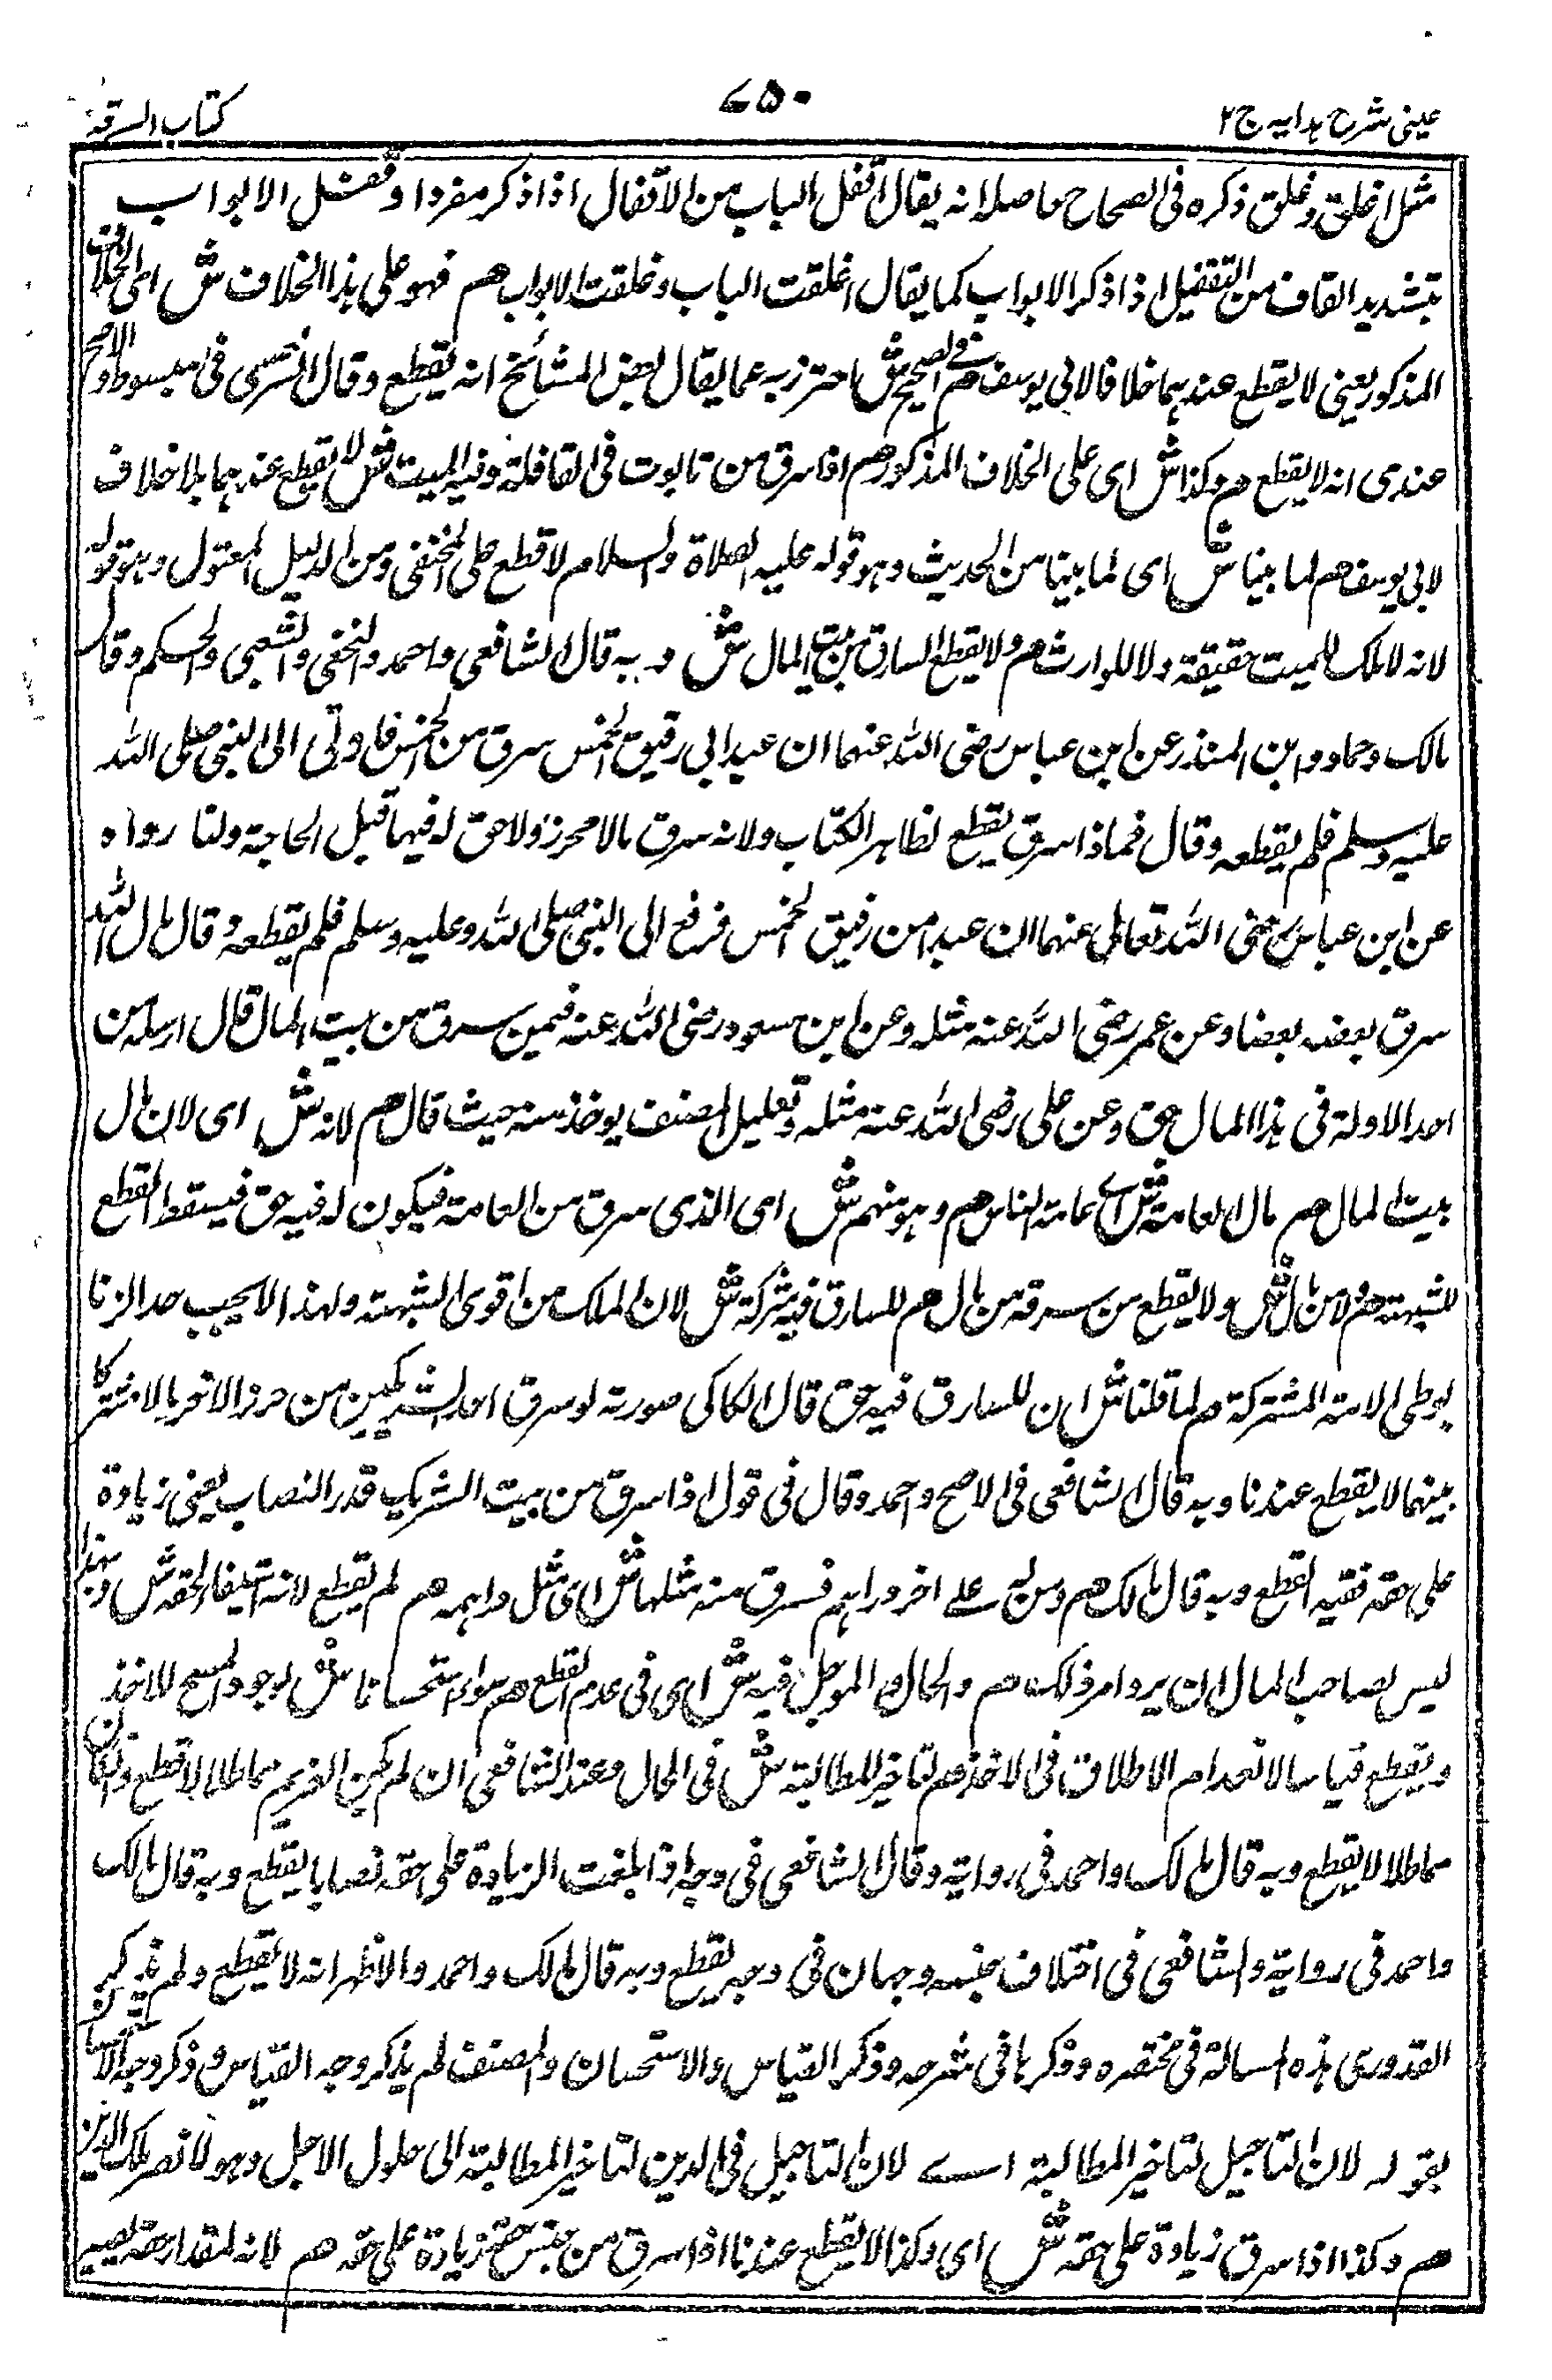 عینی شرح ہدایہ ج ۲
۷۵۰
کتاب السرقة
مثل اغلق وغلق ذكره فى الصحاح حاصله انه يقال اقفل الباب من الاقفال اذا ذكر مفردا وقفل الابواب
بتشديد القاف من التقفيل اذا ذكر الابواب كما يقال اغلقت الباب وغلقت الابواب هم فهو على هذا الخلاف ش اى الخلاف
المذكور يعنى لا يقطع عندهما خلافا لابى يوسف هم فى الصحيح ش احترز به عما يقال بعض المشائخ انه يقطع وقال السرخسى فى مبسوطه والاصح
عندى انه لا يقطع هم وكذا ش اى على الخلاف المذكور هم اذا سرق من تابوت فى القافلة وفيه الميت ش لا يقطع عندهما بلا خلاف
لابى يوسف هم لما بينا ش اى لما بينا من الحديث وهو قوله عليه الصلاة والسلام لا قطع على المختفى ومن الدليل المعقول وهو قوله
لانه لا ملك للميت حقيقة ولا للوارث هم ولا يقطع السارق من بيت المال ش وبه قال الشافعى واحمد والنخعى والشعبى والحكم وقال
مالك وحماد وابن المنذر عن ابن عباس رضى الله عنهما ان عبدا بى رقيق الخمس سرق من الخمس فاوتى الى النبى صلى الله
عليه وسلم فلم يقطعه وقال فماذا سرق يقطع لظاهر الكتاب ولانه سرق مالا محرزا ولا حق له فيها قبل الحاجة ولنا رواه
عن ابن عباس رضى الله تعالى عنهما ان عبدا من رقيق الخمس فرفع الى النبى صلى الله وعليه وسلم فلم يقطعه وقال مال الله
سرق بعضه بعضا وعن عمر رضى الله عنه مثله وعن ابن مسعود رضى الله عنه فيمن سرق من بيت المال قال ارسله من
احد الاوله فى هذا المال حق وعن على رضى الله عنه مثله وتعليل المصنف يوخذ منه حيث قال هم لانه ش اى لان مال
بيت المال هم مال العامة ش اى عامة الناس هم وهو منهم ش اى الذى سرق من العامة فيكون له فيه حق فيسقط القطع
للشبهة هم ولا من مال ش ولا يقطع من سرقة من مال هم للسارق فيه شركة ش لان الملك من اقوى الشبهة ولهذا لا يجب حد الزنا
بوطى الامته المشتركة هم لما قلنا ش ان للسارق فيه حق قال الكاكى صورته لو سرق احد الشريكين من حرز الاخر مالا مشتركا
بينهما لا يقطع عندنا وبه قال الشافعى فى الاصح واحمد وقال فى قول اذا سرق من بيت الشريك قدر النصاب يعنى زيادة
على حقه ففيه القطع وبه قال مالك هم ومن له على اخر دراهم فسرق منه مثلها ش اى مثل دراهمه هم لم يقطع لانه استيفاء لحقه ش وبهذا
ليس لصاحب المال ان يرد امر ذلك هم والحال والموجل فيه ش اى فى عدم القطع هم سواء استحسانا ش لوجود المبيح للاخذ
ويقطع قياسا لانعدام الاطلاق فى الاخذ هم لتاخير المطالبة ش فى الحال وعند الشافعى ان لم يكن الغريم مماطلا لا قطع وان كان
مماطلا لا يقطع وبه قال مالك واحمد فى رواية وقال الشافعى فى وجه اذا بلغت الزيادة على حقه نصابا يقطع وبه قال مالك
واحمد فى رواية والشافعى فى اختلاف جنسه وجهان فى وجه يقطع وبه قال مالك واحمد والاظهر انه لا يقطع ولم يذكر
القدورى هذه المسالة فى مختصره وذكرها فى شرحه وذكر القياس والاستحسان والمصنف لم يذكر وجه القياس وذكر وجه الاستحسان
بقوله لان التاجيل لتاخير المطالبة اى لان التاجيل فى الدين لتاخير المطالبة الى حلول الاجل وهو لا تصر ملك الدين
هم وكذا اذا سرق زيادة على حقه ش اى وكذا لا يقطع عندنا اذا سرق من جنس حقه زيادة على حقه هم لانه لمقدار حقه يصير